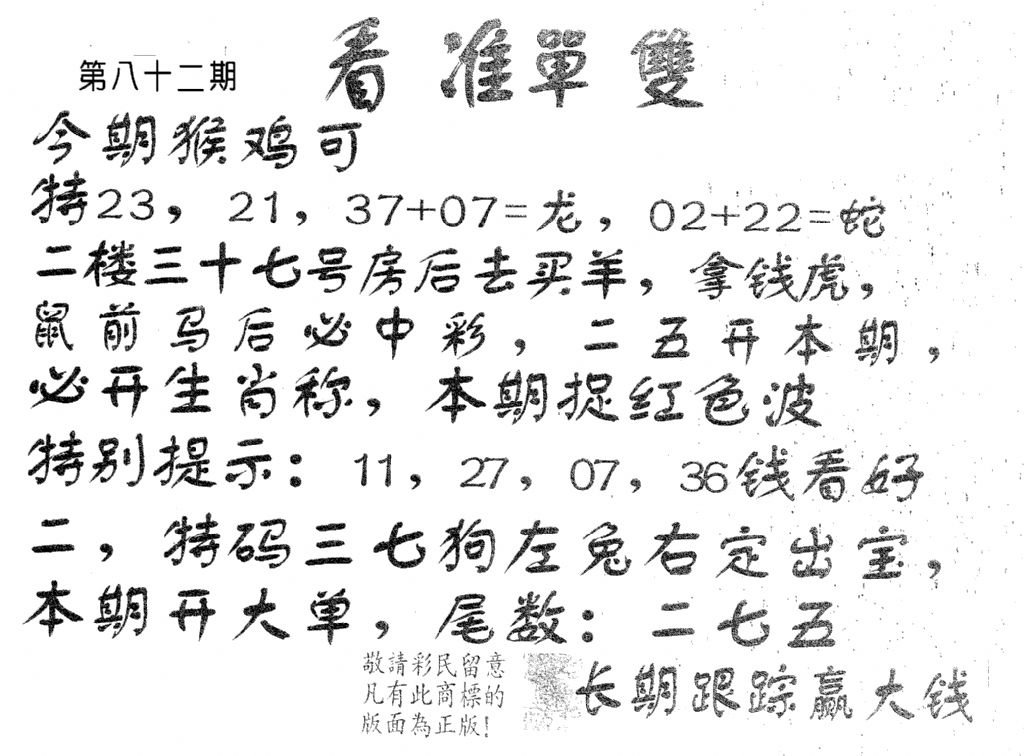 第八十二期
看准單雙
今期猴鸡可
特23，21，37+07=龙，02+22=蛇
二楼三十七号房后去买羊，拿钱虎，
鼠前马后必中彩，二五开本期，
必开生肖称，本期捉红色波
特别提示：11，27，07，36钱看好
二，特码三七狗左兔右定出宝，
本期开大单，尾数：二七五
敬請彩民留意
凡有此商標的
版面為正版！
长期跟踪赢大钱